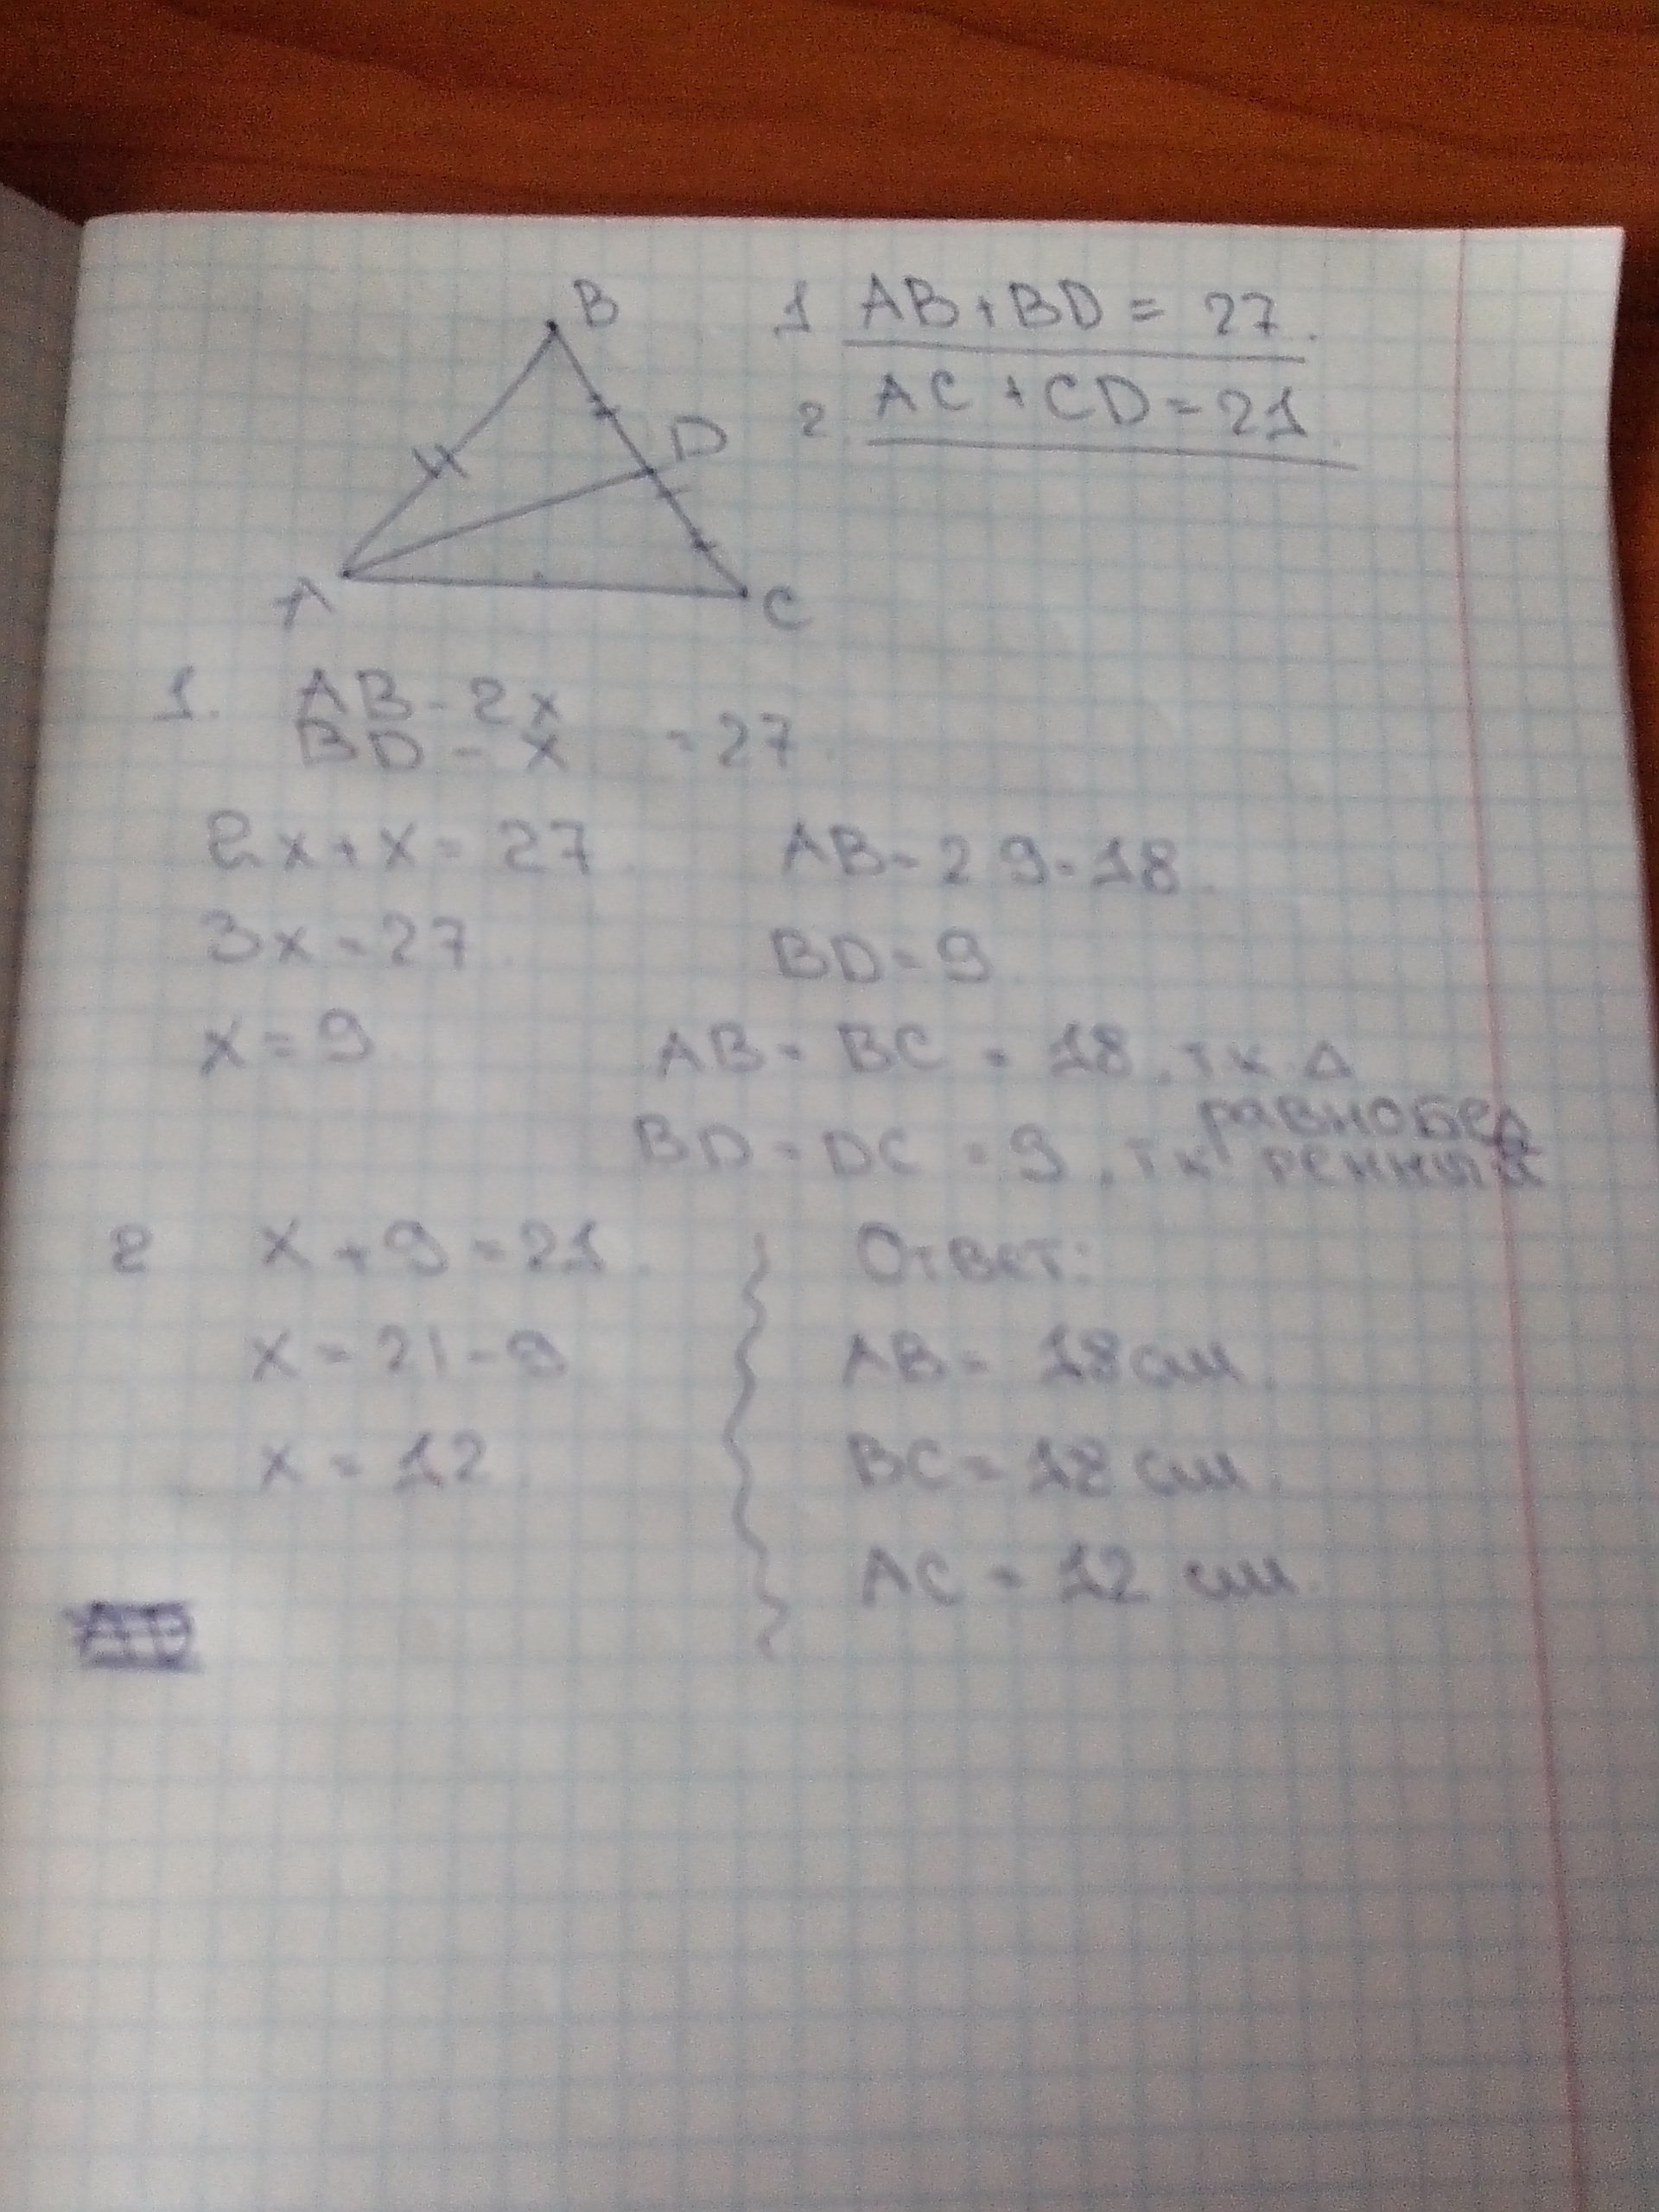 B
D
A
C
1 AB+BD = 27.
2. AC + CD = 21.
1. AB - 2x
BD - x = 27.
2x + x = 27.
AB = 2 9 = 18.
3x = 27
BD = 9
x = 9
AB = BC = 18, тк Δ
равнобед
ренный
BD = DC = 9, тк
2 x + 9 = 21.
x = 21 - 9
x = 12.
Ответ:
AB = 18 см.
BC = 18 см.
AC = 12 см.